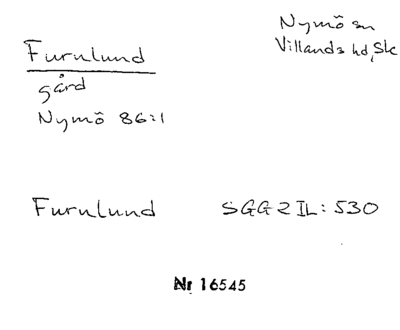 Furulund
gård
Nymö 86:1
Nymö sn
Villands hd, Sk
Furulund SGG2IL:530
Nr 16545